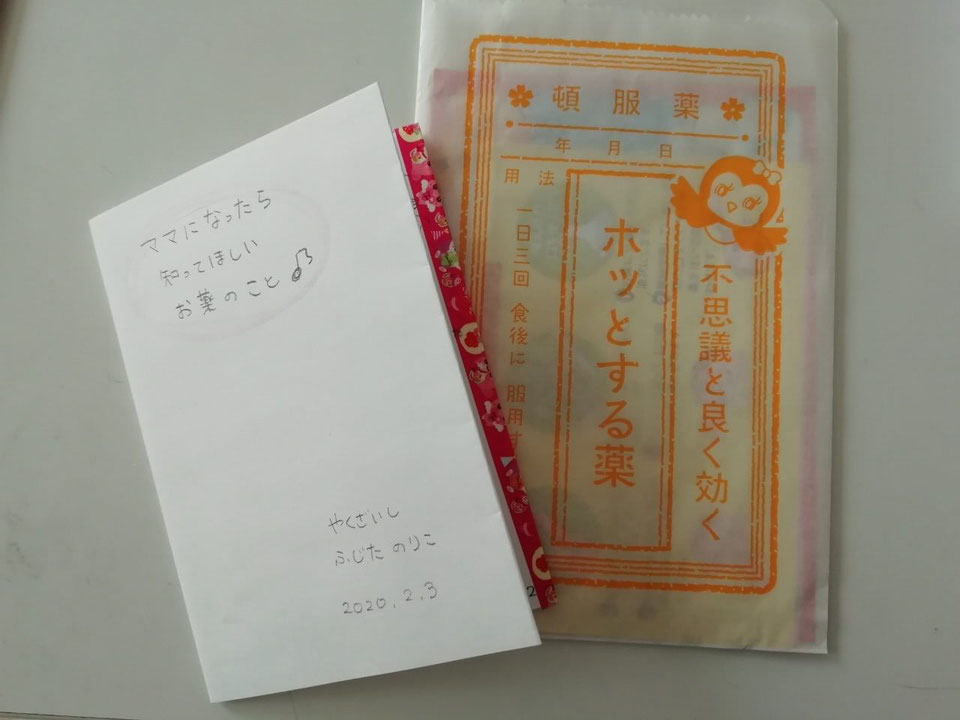 ママになったら
知ってほしい
お薬のこと♪
やくざいし
ふじた のりこ
2020.2.3
頓服薬
年 月 日
用法
一日三回 食後に 服用す
不思議と良く効く
ホッとする薬
2